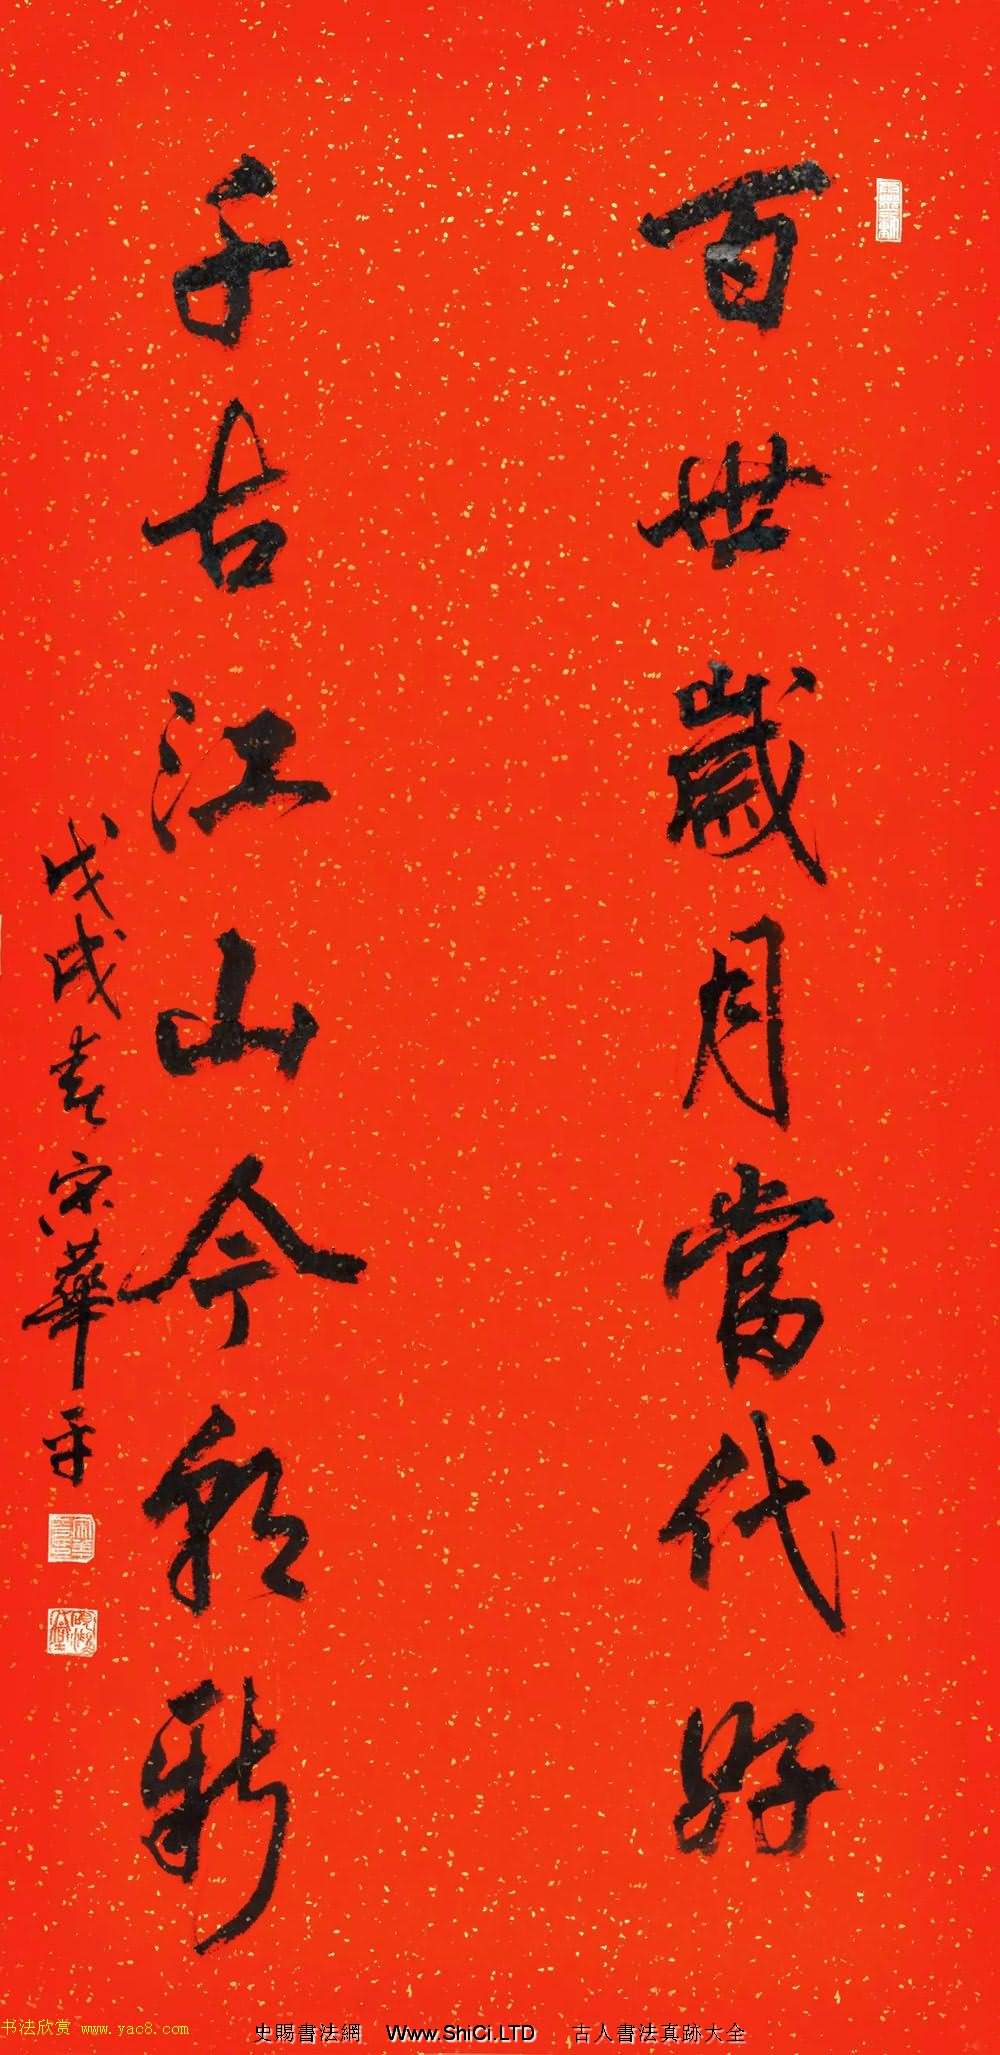 百世歲月當代好
千古江山今朝新
戊戌春宋華平
书法欣赏 www.yac8.com
史賜書法網 Www.ShiCi.LTD 古人書法真跡大全